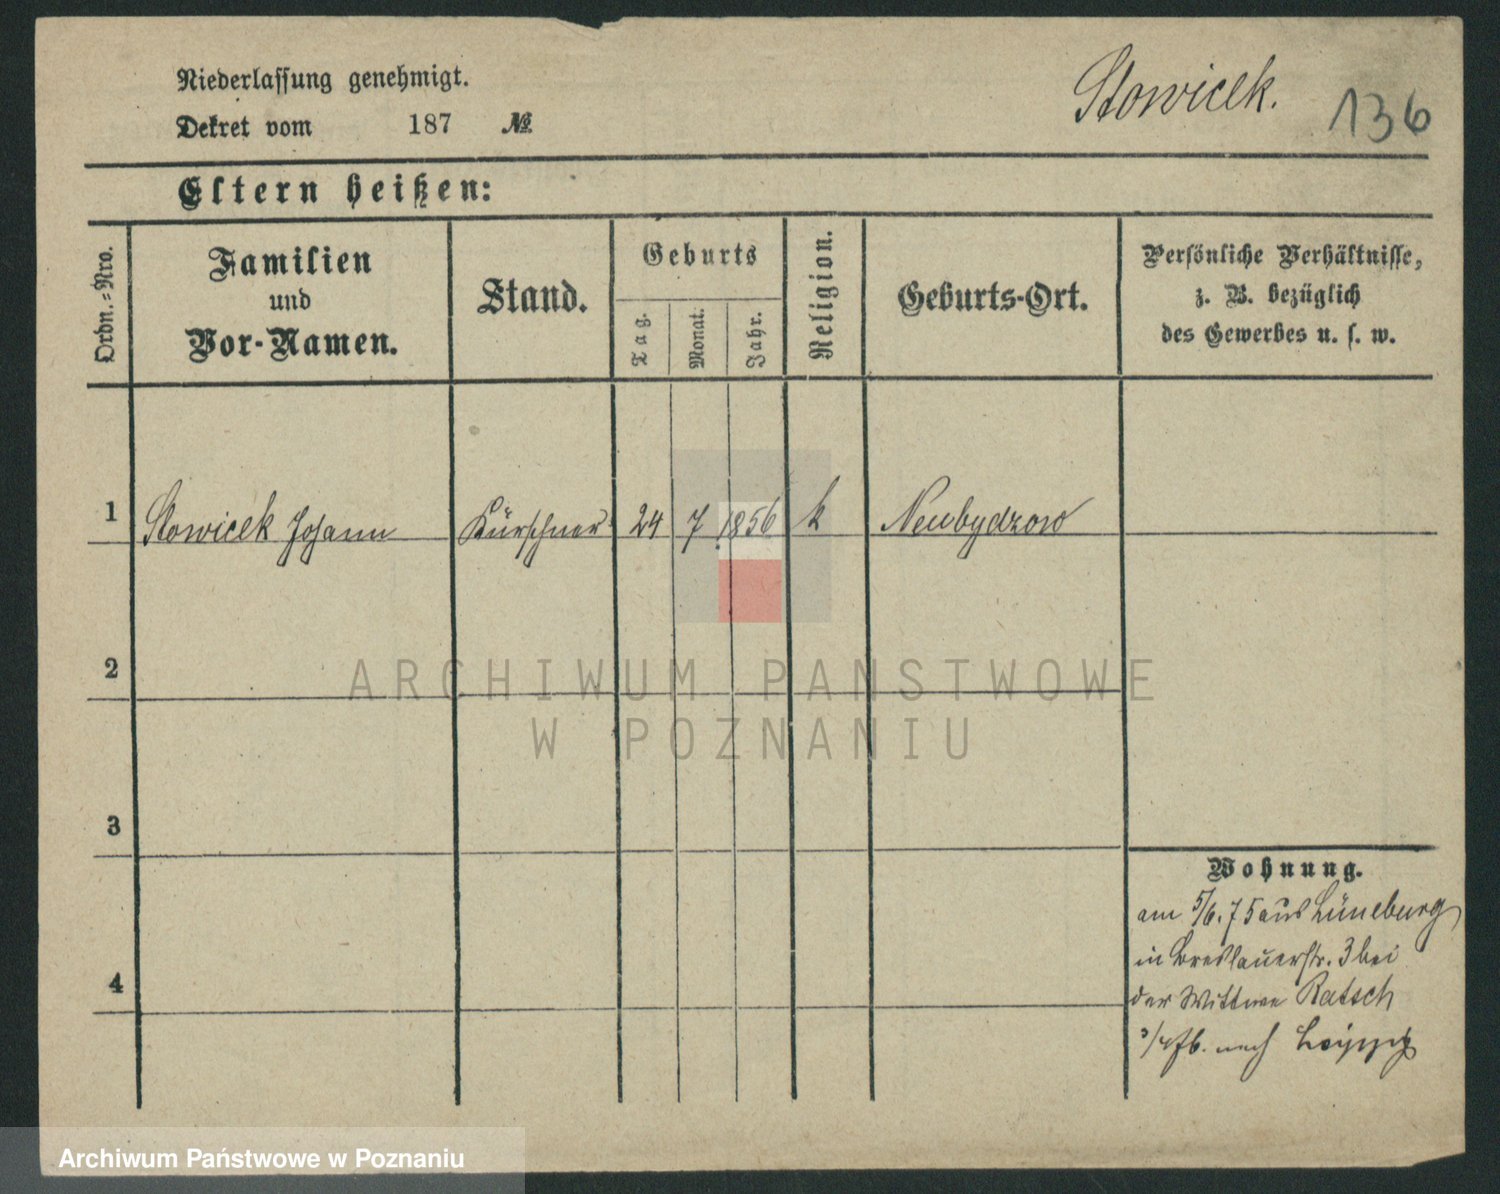 Niederlassung genehmigt.
Dekret vom 187 №
Slowicek.
136
Eltern heißen:
Ordn.-Nro.
Familien
und
Vor-Namen.
Stand.
Geburts
Tag.
Monat.
Jahr.
Religion.
Geburts-Ort.
Persönliche Verhältnisse,
z. B. bezüglich
des Gewerbes u. s. w.
1 Slowicek Johann Kürschner 24 7 1856 k Neubydzow
2
3
4
Wohnung.
am 5/6.75 aus Lüneburg
in Breslauerstr. 3 bei
der Wittwe Ratsch
nach Leipzig
ARCHIWUM PAŃSTWOWE
W POZNANIU
Archiwum Państwowe w Poznaniu